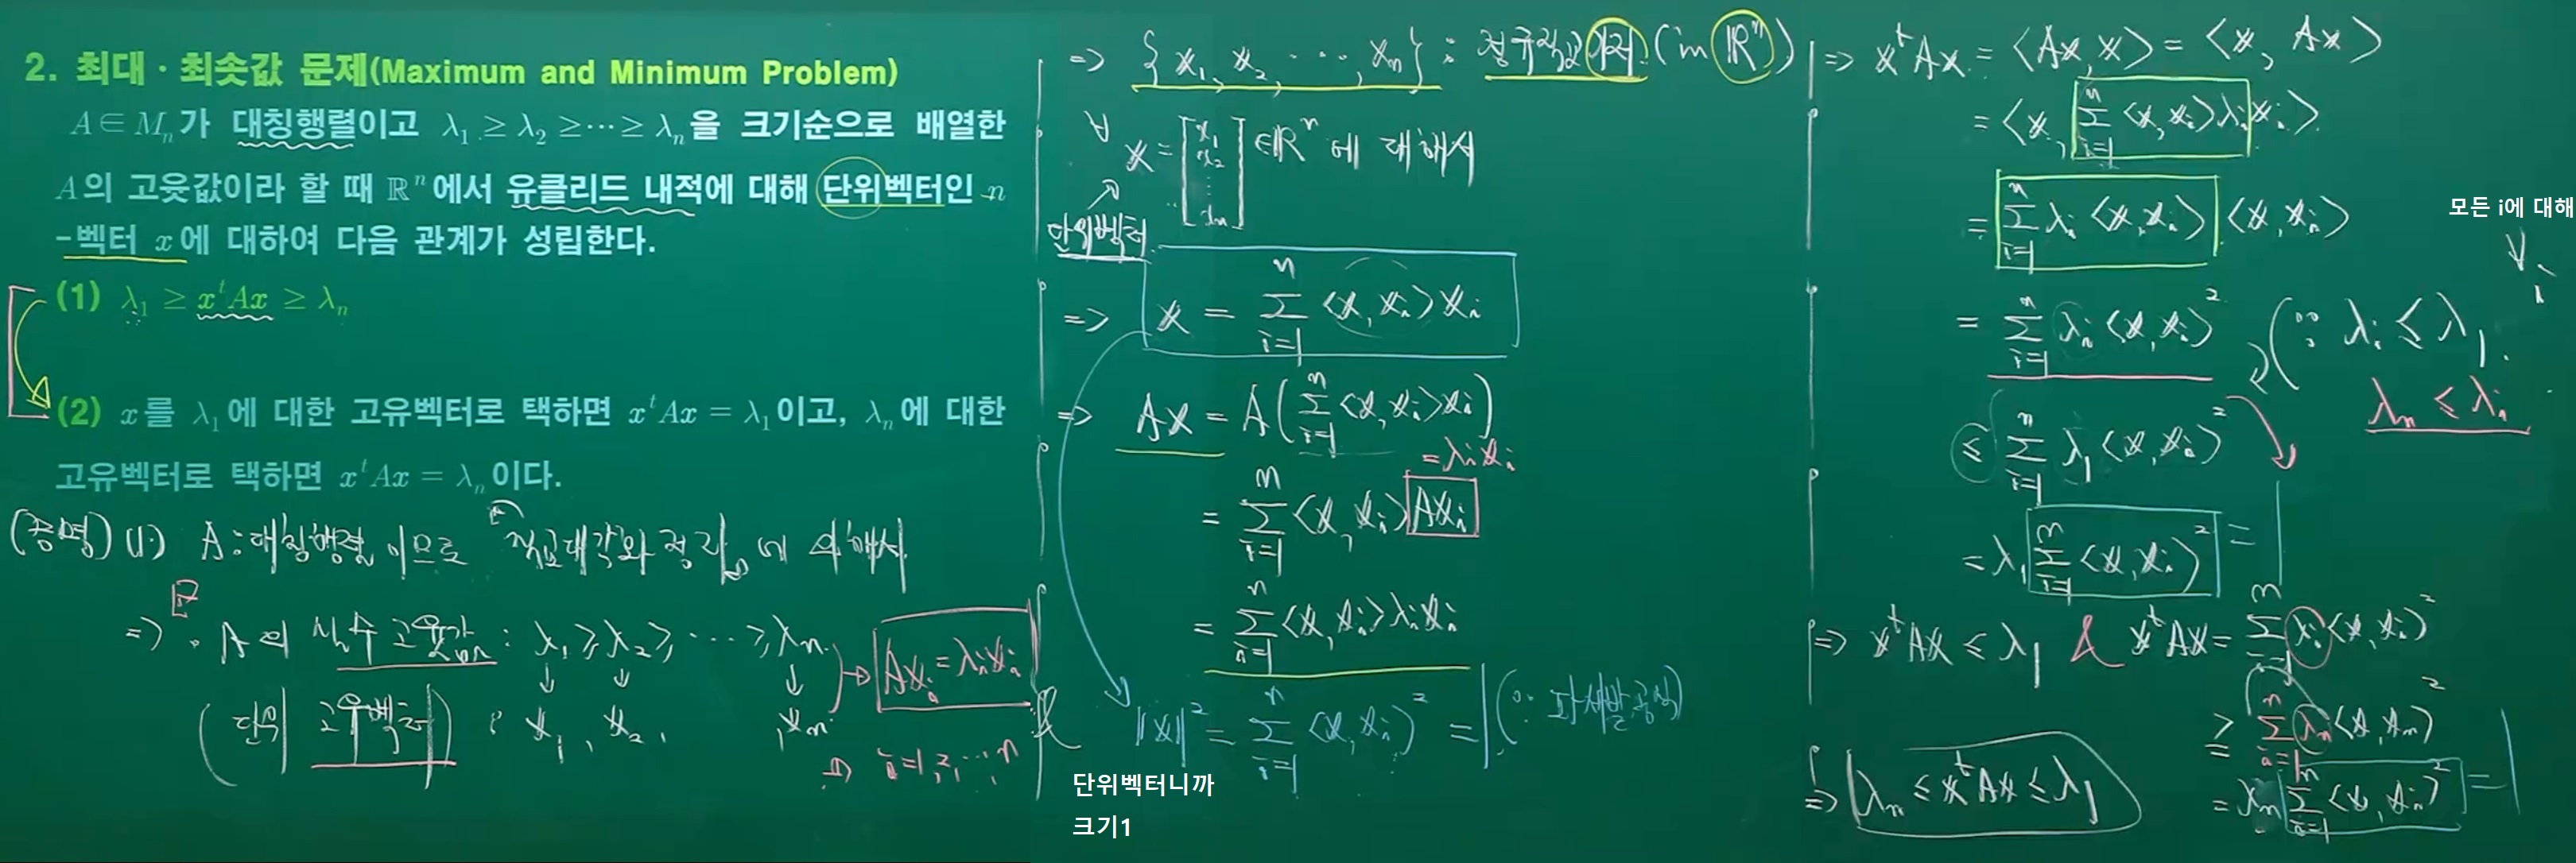 2. 최대 · 최솟값 문제(Maximum and Minimum Problem)
A ∈ Mₙ가 대칭행렬이고 λ₁ ≥ λ₂ ≥ ⋯ ≥ λₙ을 크기순으로 배열한
A의 고윳값이라 할 때 ℝⁿ에서 유클리드 내적에 대해 단위벡터인 n
-벡터 x에 대하여 다음 관계가 성립한다.
(1) λ₁ ≥ xᵗAx ≥ λₙ
(2) x를 λ₁에 대한 고유벡터로 택하면 xᵗAx = λ₁이고, λₙ에 대한
고유벡터로 택하면 xᵗAx = λₙ이다.
(증명) (1) A : 대칭행렬 이므로 『직교대각화 정리』에 의해서
⇒ 『· A의 실수 고윳값 : λ₁ ≥ λ₂ ≥ ⋯ ≥ λₙ
↓ ↓ ↓
(단위 고유벡터) : x₁, x₂, , xₙ
→ Axᵢ = λᵢxᵢ
⇒ i=1, 2, ⋯, n
⇒ {x₁, x₂, ⋯, xₙ} : 정규직교기저 (in ℝⁿ)
∀x = [x₁ x₂ ⋮ xₙ] ∈ ℝⁿ에 대해서
단위벡터
⇒ x = Σᵢ₌₁ⁿ <x, xᵢ>xᵢ
⇒ Ax = A(Σᵢ₌₁ⁿ <x, xᵢ>xᵢ)
= λᵢxᵢ
= Σᵢ₌₁ⁿ <x, xᵢ>Axᵢ
= Σᵢ₌₁ⁿ <x, xᵢ>λᵢxᵢ
& ‖x‖² = Σᵢ₌₁ⁿ <x, xᵢ>² = 1 (∵ 파세발 공식)
단위벡터니까
크기1
⇒ xᵗAx = <Ax, x> = <x, Ax>
= <x, Σᵢ₌₁ⁿ <x, xᵢ>λᵢxᵢ>
= Σᵢ₌₁ⁿ λᵢ<x, xᵢ> <x, xᵢ>
모든 i에 대해
∀i
= Σᵢ₌₁ⁿ λᵢ<x, xᵢ>² (∵ λᵢ ≤ λ₁.
λₙ ≤ λᵢ
≤ Σᵢ₌₁ⁿ λ₁<x, xᵢ>²
= λ₁ Σᵢ₌₁ⁿ <x, xᵢ>² = 1
⇒ xᵗAx ≤ λ₁ & xᵗAx = Σᵢ₌₁ⁿ λᵢ<x, xᵢ>²
≥ Σᵢ₌₁ⁿ λₙ<x, xₙ>²
= λₙ Σᵢ₌₁ⁿ <x, xᵢ>² = 1
⇒ λₙ ≤ xᵗAx ≤ λ₁